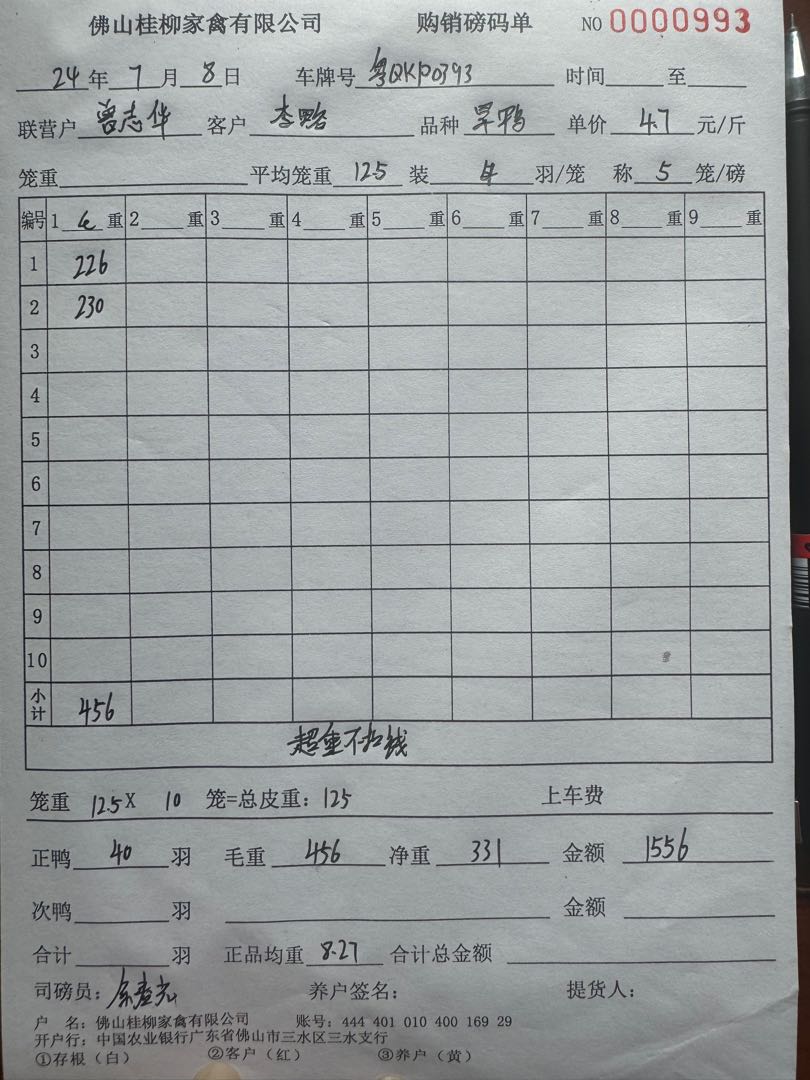 佛山桂柳家禽有限公司 购销磅码单 NO 0000993
24年7月8日 车牌号 粤QKP0393 时间 至
联营户 曾志华 客户 李 品种 旱鸭 单价 4.7 元/斤
笼重 平均笼重 12.5 装 4 羽/笼 称 5 笼/磅
编号 1 毛 重 2 重 3 重 4 重 5 重 6 重 7 重 8 重 9 重
1 226
2 230
3
4
5
6
7
8
9
10
小计 456
超重不扣钱
笼重 12.5 X 10 笼=总皮重：125 上车费
正鸭 40 羽 毛重 456 净重 331 金额 1556
次鸭 羽 金额
合计 羽 正品均重 8.27 合计总金额
司磅员： 养户签名： 提货人：
户 名：佛山桂柳家禽有限公司 账号：444 401 010 400 169 29
开户行：中国农业银行广东省佛山市三水区三水支行
①存根（白） ②客户（红） ③养户（黄）